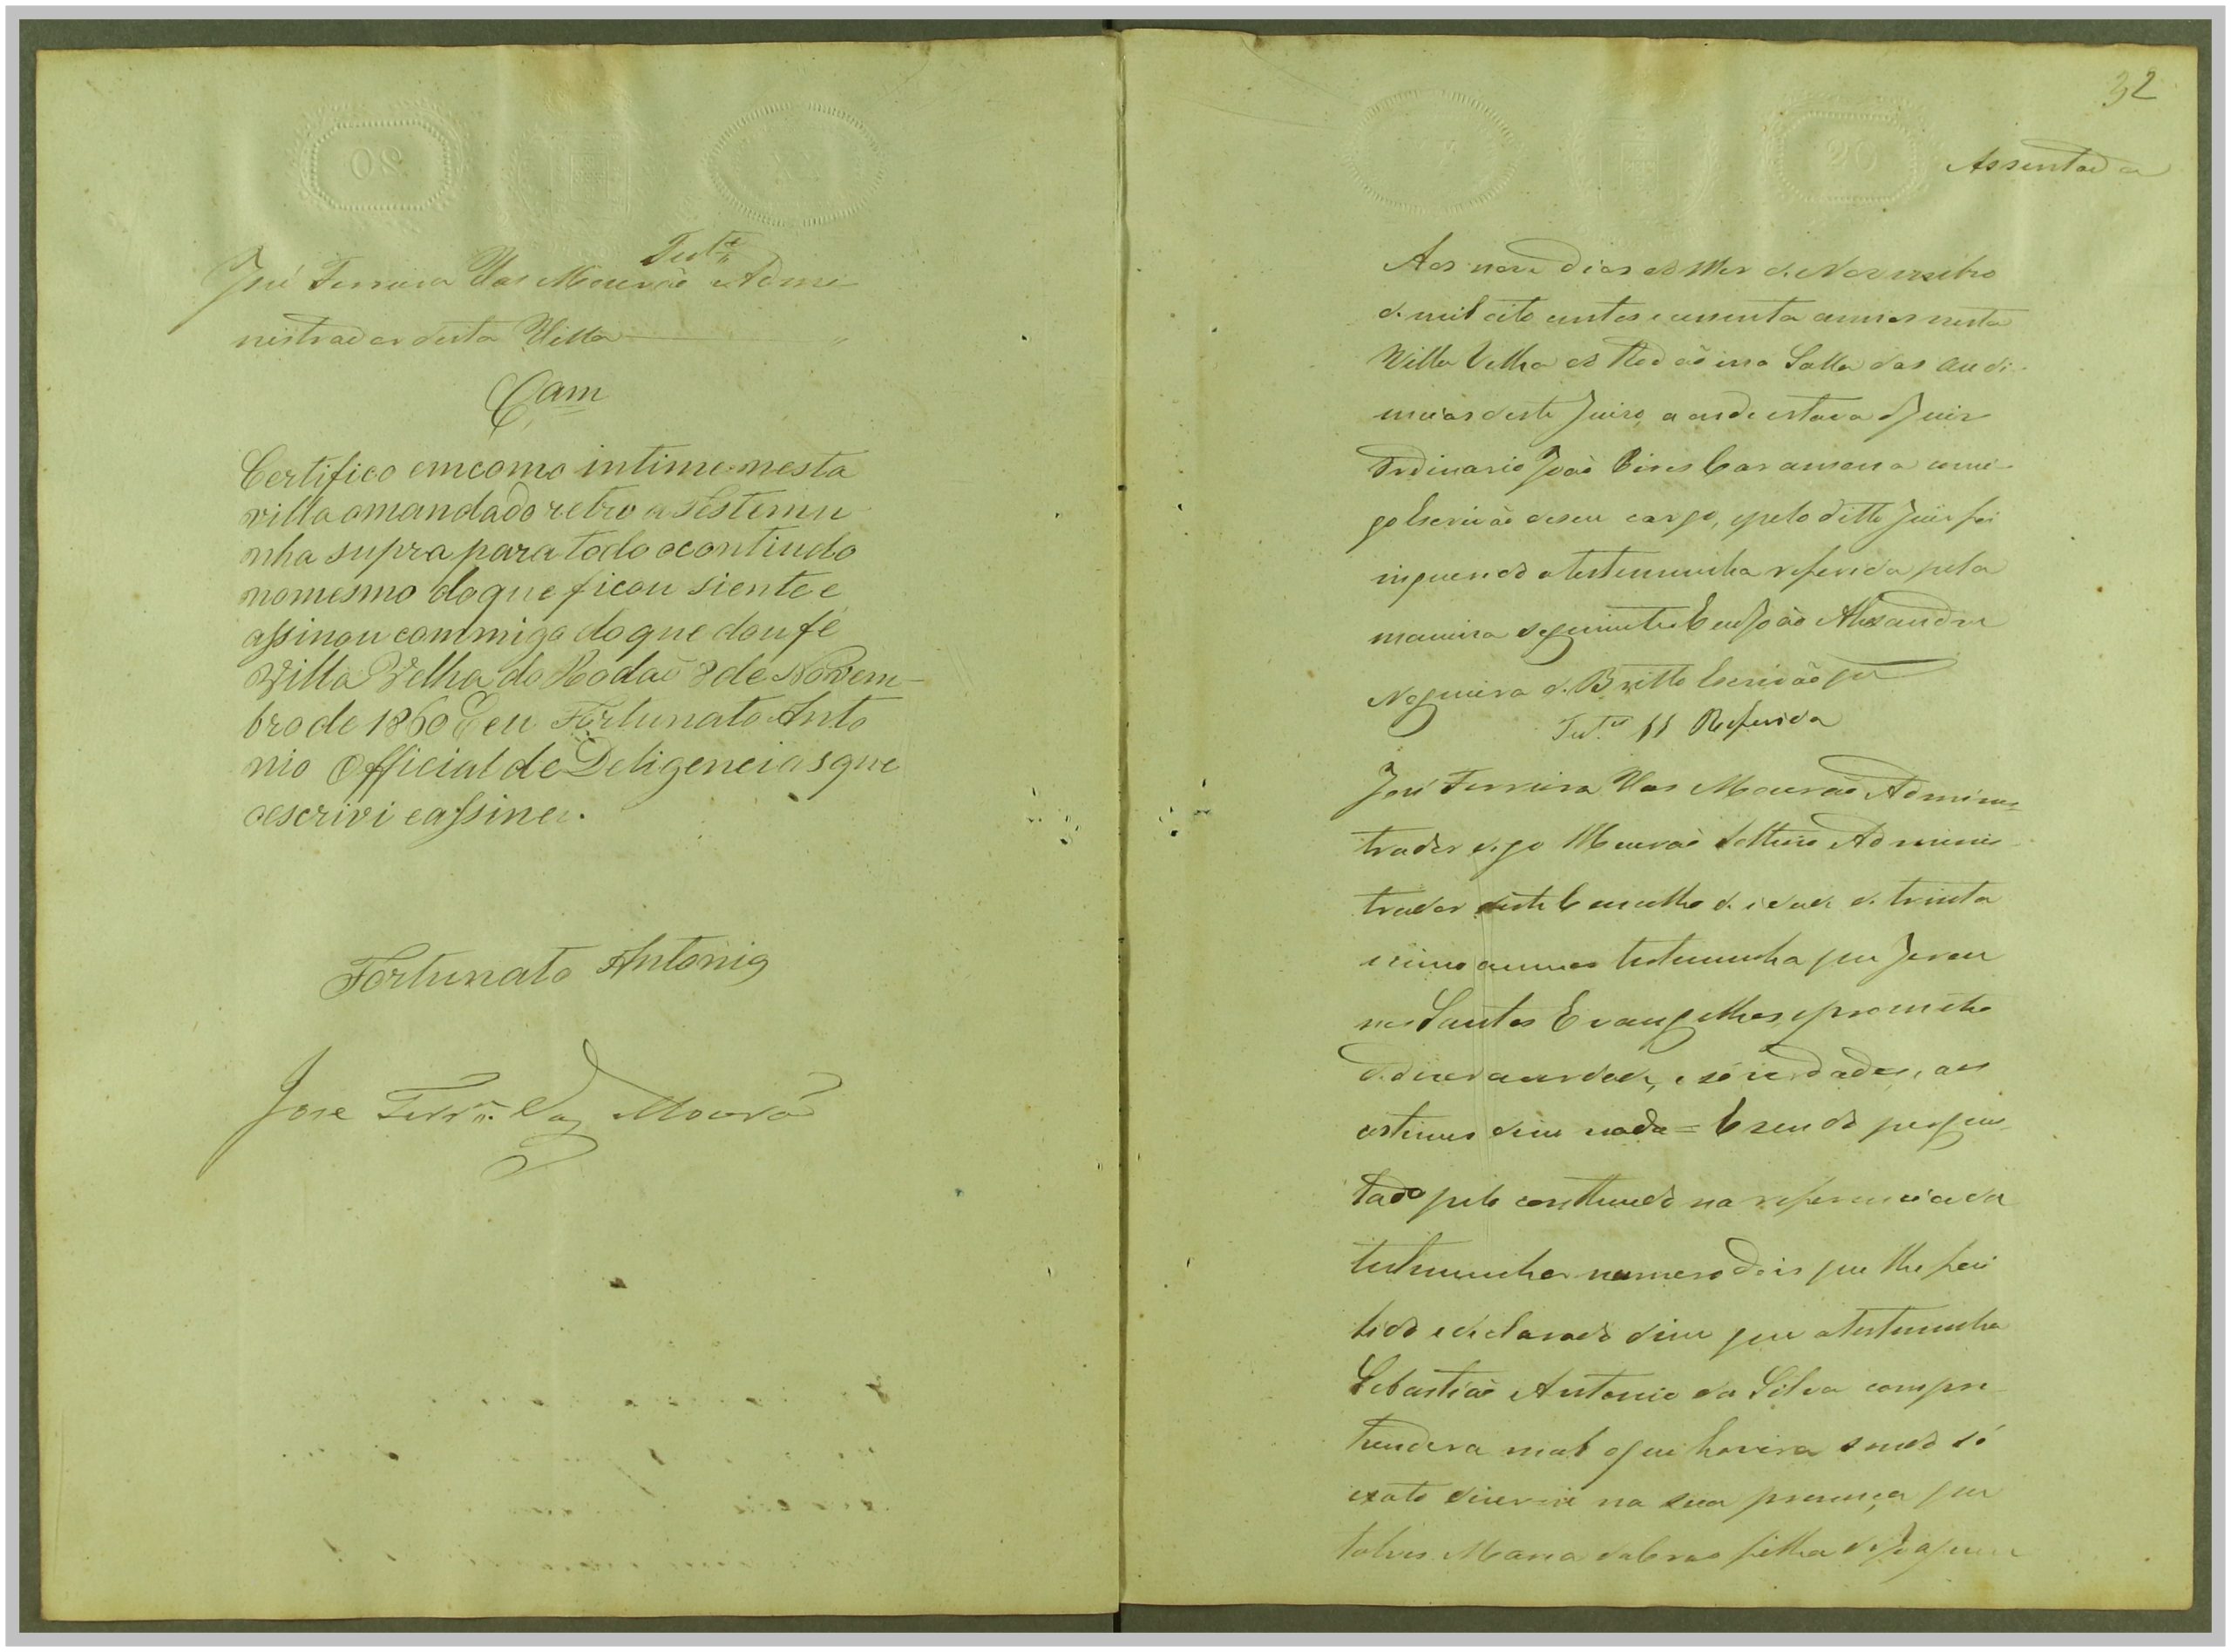 Test.ª
José Ferreira Vas Mourão Admi
nistrador desta Villa
Cam
Certifico em como intime nesta
villa o mandado retro a testemu
nha supra para todo o contiudo
no mesmo do que ficou siente e
assinou commigo do que dou fé
Villa Velha do Rodaõ 8 de Novem-
bro de 1860 E eu Fortunato Anto
nio Official de Deligencias que
o escrivi e assinei.
Fortunato Antonio
Jose Ferr.ª Vaz Mourão
32
Assentada
Aos nove dias do Mes de Novembro
de mil oito centos e cessenta annos nesta
Villa Velha do Rodão e na Salla das audi
encias deste Juizo, a onde estava o Juiz
Ordinario João Pires Caramona comi-
go Escrivão do seu cargo, e pelo ditto Juiz foi
inquerido a testemunha referida pela
maneira seguinte E eu João Alexandre
Nogueira de Britto Escrivão que
Test.ª 11 Referida
José Ferreira Vas Mourão Adminis-
trador digo Mourão Solteiro Adminis
trador deste Concelho de idade de trinta
e cinco annos testemunha que Jurou
nos Santos Evangelhos, e prometeo
de dizer a verdade, e só verdade, aos
costumes disse nada = E sendo pregun-
tado pelo contheudo na referencia da
testemunha numero dois que lhe foi
lido e declarado disse que a testemunha
Sebastião Antonio da Silva compre
hendera mal o que houvira sendo só
exato dizer-se na sua prezença que
talves Maria da Cruz filha de Joaquim